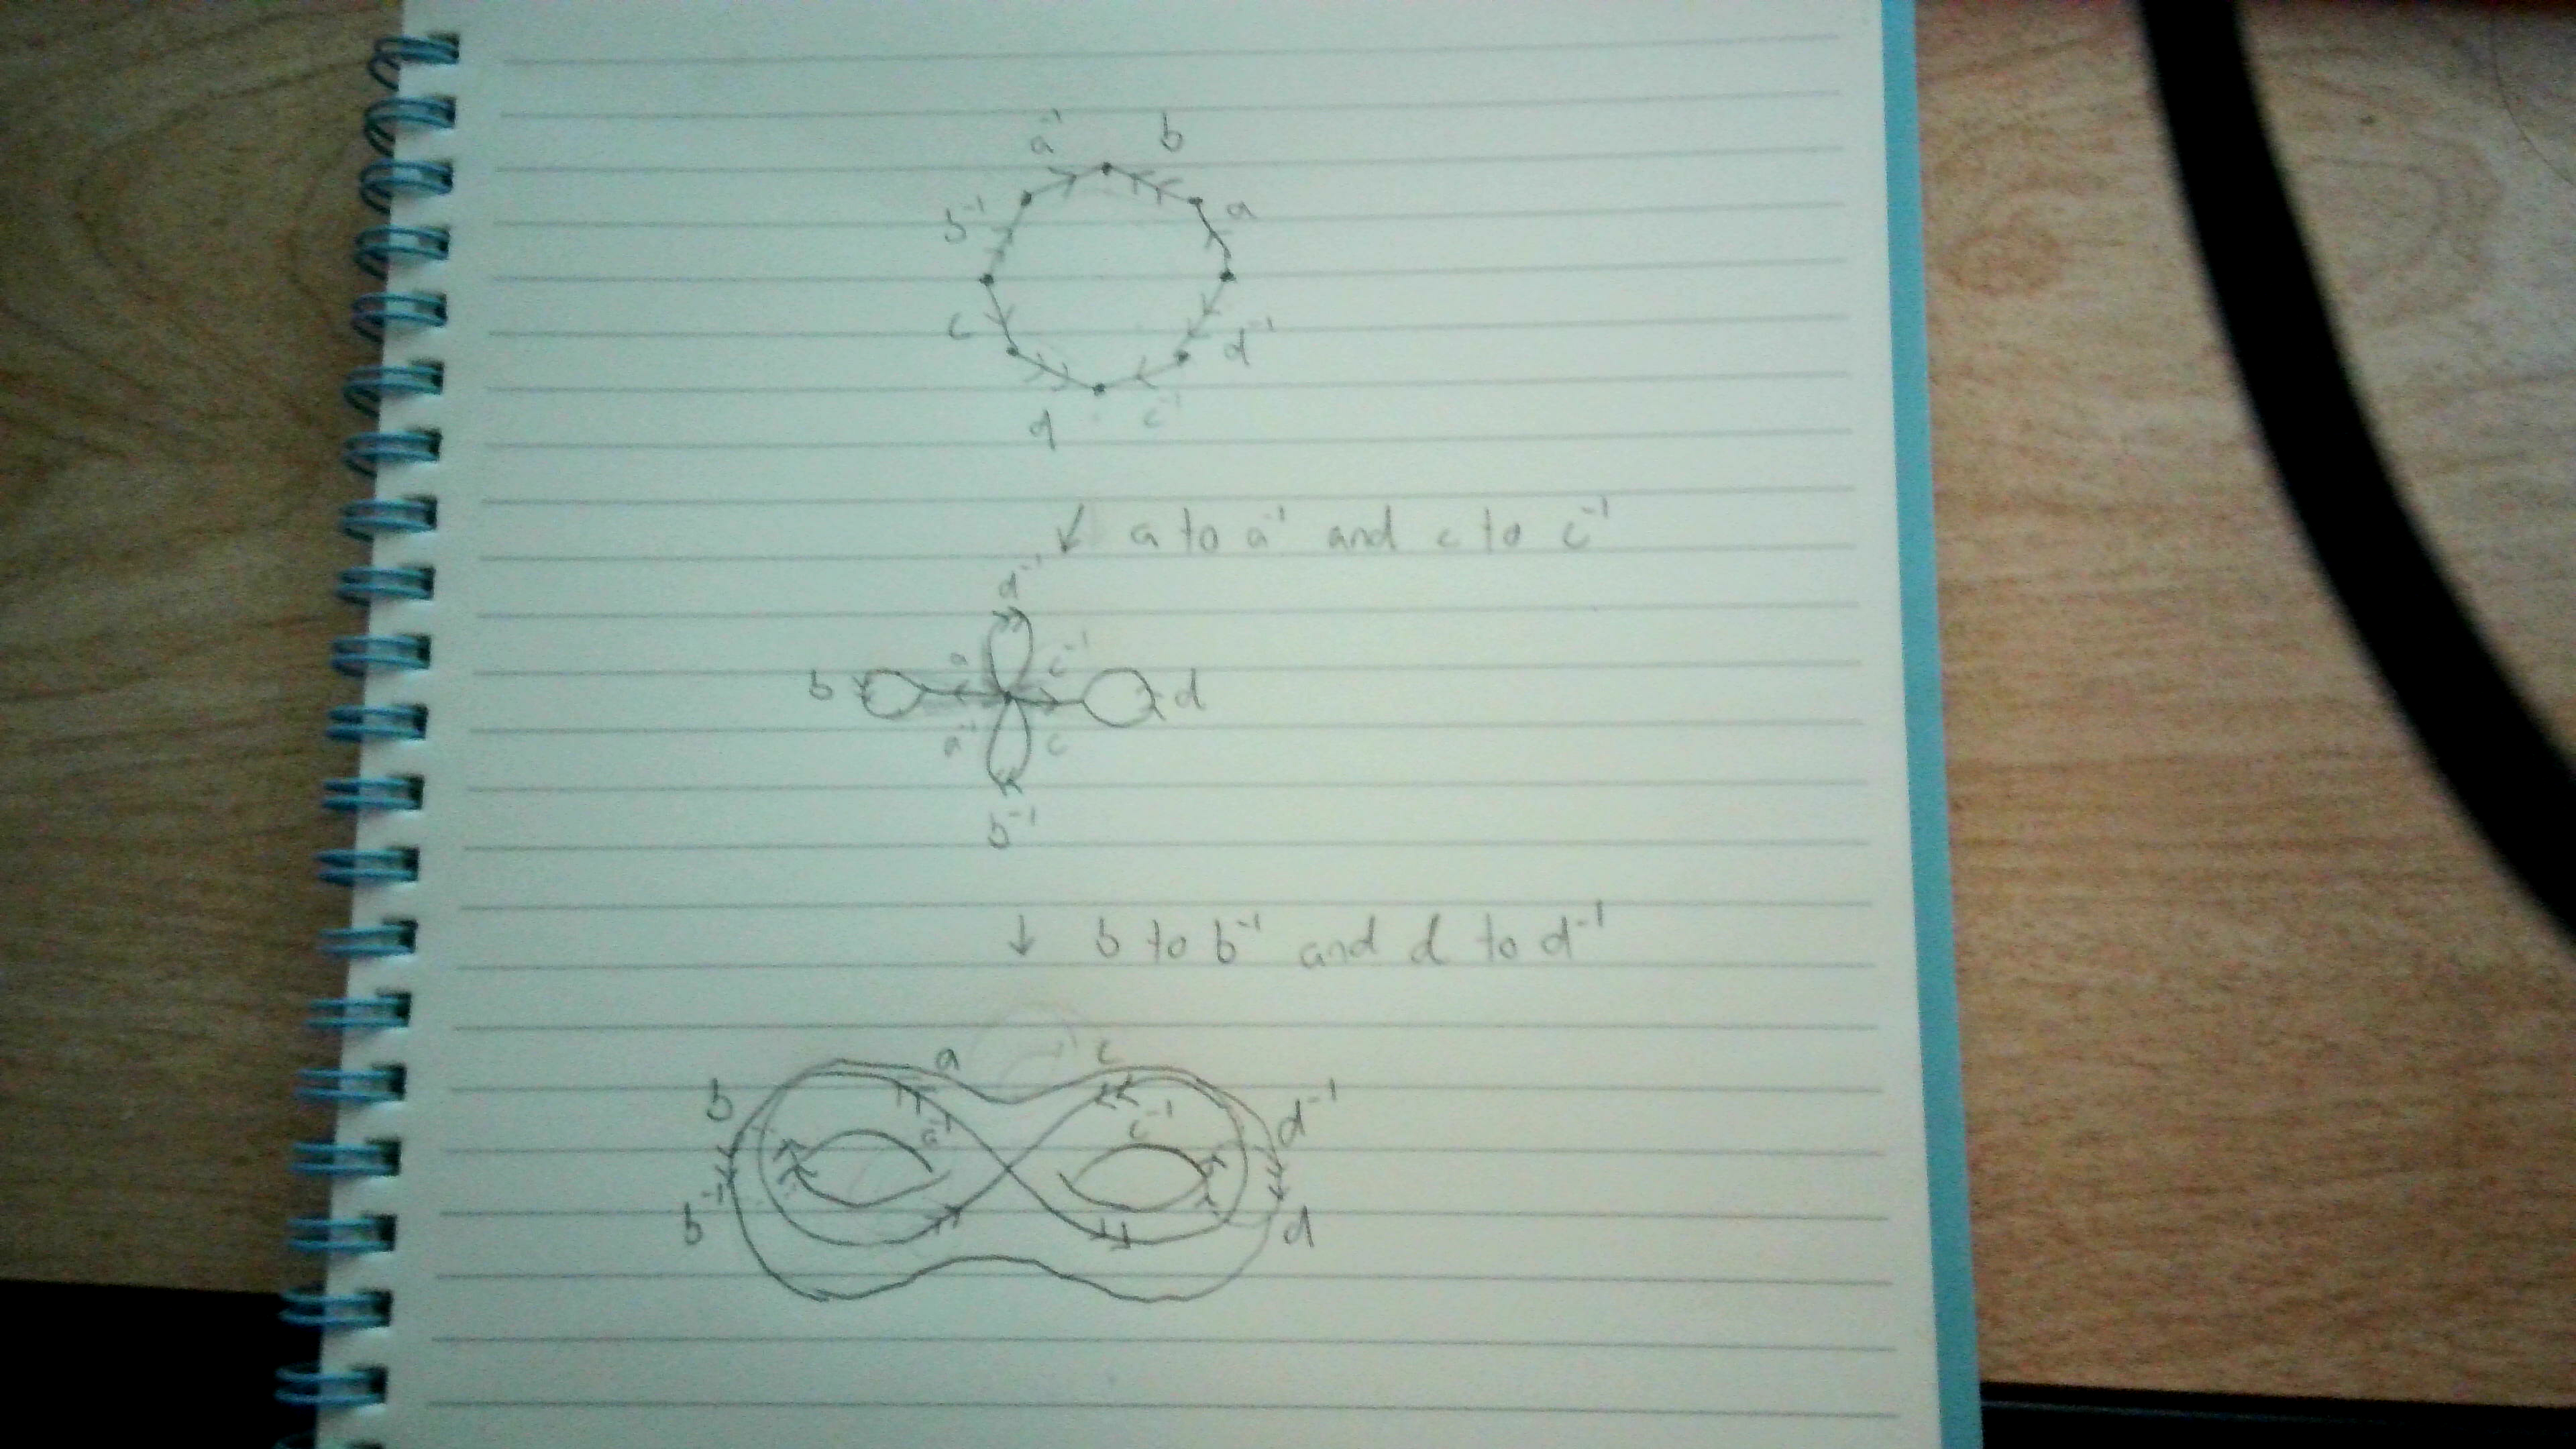 a⁻¹ b
b⁻¹ a
c d⁻¹
d c⁻¹
↙ a to a⁻¹ and c to c⁻¹
d⁻¹
a c⁻¹
b d
a⁻¹ c
b⁻¹
↓ b to b⁻¹ and d to d⁻¹
a c
b a⁻¹ c⁻¹ d⁻¹
b⁻¹ d